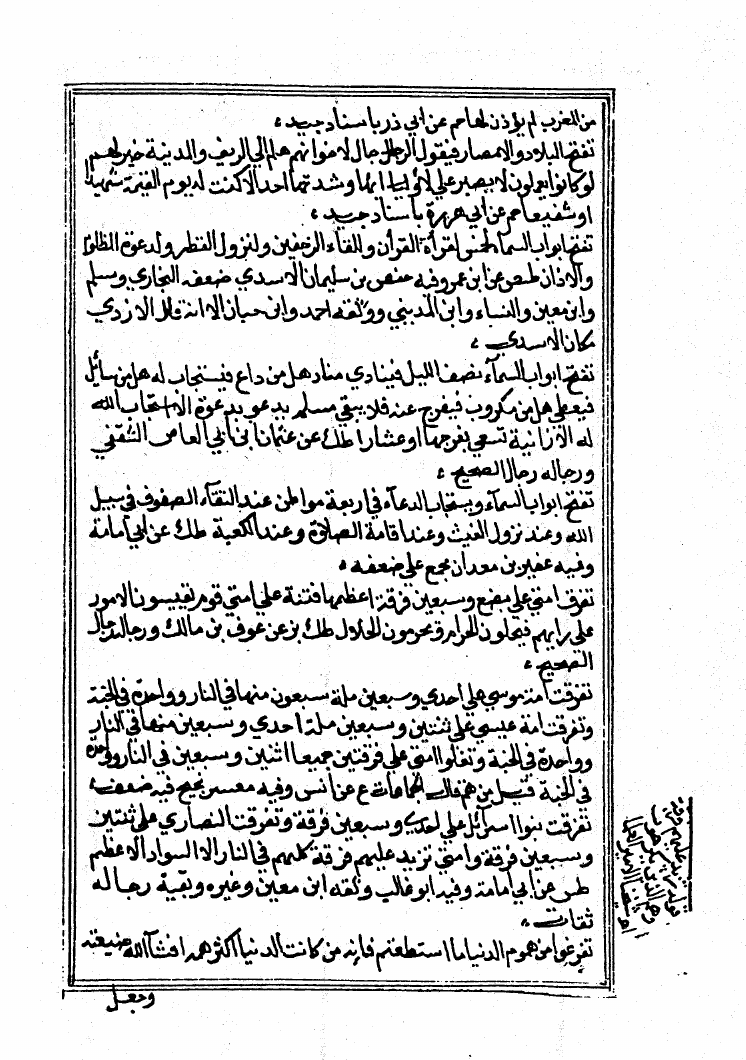 من المغرب لم يؤذن لها حم عن ابي ذر باسناد جيد ،
تفتح البلاد والامصار فيقول الرجال لاخوانهم هلم الي الريف والمدينة خير لهم
لو كانوا يعلمون لا يصبر علي لأوايها وشدتها احد الا كنت له يوم القيمة شهيدا
او شفيعا حم عن ابي هريرة باسناد جيد ،
تفتح ابواب السما لخمس لقرأة القرأن وللقاء الزحفين ولنزول القطر ولدعوة المظلوم
والاذان طص عن ابن عمر وفيه حفص بن سليمان الاسدي ضعفه البخاري ومسلم
وابن معين والنساء وابن المديني ووثقه احمد وابن حبان الا انه قال الازدي
مكان الاسدي ،
تفتح ابواب السمآء نصف الليل فينادي مناد هل من داع فيستجاب له هل من سائل
فيعطي هل من مكروب فيفرج عنه فلا يبقي مسلم يدعو بدعوة الا استجاب الله
له الا زانية تسعي بفرجها او عشارا طك عن عثمان ابن ابي العاص الثقفي
ورجاله رجال الصحيح ،
تفتح ابواب السمآء ويستجاب الدعآء في اربعة مواطن عند التقآء الصفوف في سبيل
الله وعند نزول الغيث وعند اقامة الصلاة وعند الكعبة طك عن ابي امامة
وفيه عفير بن معدان مجمع علي ضعفه ،
تفرق امتي علي بضع وسبعين فرقة اعظمها فتنة علي امتي قوم يقيسون الامور
علي رايهم فيحلون الحرام ويحرمون الحلال طك بز عن عوف بن مالك ورجاله رجال
الصحيح ،
تفرقت امة موسي علي احدي وسبعين ملة سبعون منها في النار وواحدة في الجنة
وتفرقت امة عيسي علي ثنتين وسبعين ملة احدي وسبعين منها في النار
وواحدة في الجنة وتعلوا امتي علي فرقتين جميعا اثنين وسبعين في النار وواحدة
في الجنة قيل من هم قال الجماعات ع عن انس وفيه معسر نجيح فيه ضعف ،
تفرقت بنوا اسرائل علي احدي وسبعين فرقة وتفرقت النصاري علي ثنتين
وسبعين فرقة وامتي تزيد عليهم فرقة كلهم في النار الا السواد الاعظم
طس عن ابي امامة وفيه ابو غالب وثقه ابن معين وغيره وبقية رجاله
ثقات ،
تفرغوا من هموم الدنيا ما استطعتم فانه من كانت الدنيا اكثر همه افشآ الله ضيعته
وجعل
قوله تزيد عليهم فرقة